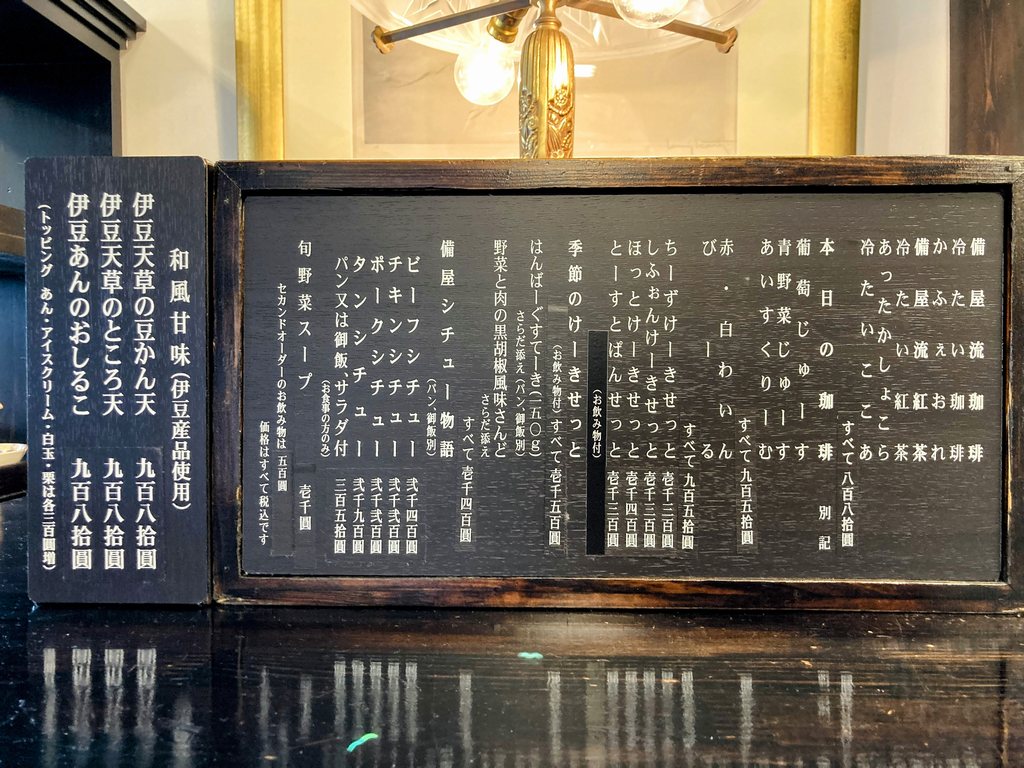 備屋流珈琲
冷たい珈琲
かふぇおれ
備屋流紅茶
冷たい紅茶
あったかしょこら
冷たいここあ
すべて八百八拾圓
本日の珈琲 別記
葡萄じゅーす
青野菜じゅーす
あいすくりーむ
すべて九百五拾圓
赤・白わいん
びーる
すべて九百五拾圓
ちーずけーきせっと 壱千三百圓
しふぉんけーきせっと 壱千三百圓
ほっとけーきせっと 壱千四百圓
とーすとぱんせっと 壱千三百圓
（お飲み物付）
季節のけーきせっと
（お飲み物付）すべて壱千五百圓
はんばーぐすてーき（一五〇g）
さらだ添え（パン 御飯別）
野菜と肉の黒胡椒風味さんど
さらだ添え
すべて壱千四百圓
備屋シチュー物語
（パン 御飯別）
ビーフシチュー 弐千四百圓
チキンシチュー 弐千弐百圓
ポークシチュー 弐千弐百圓
タンシチュー 弐千九百圓
パン又は御飯、サラダ付 三百五拾圓
（お食事の方のみ）
旬野菜スープ 壱千圓
セカンドオーダーのお飲み物は五百圓
価格はすべて税込です
和風甘味（伊豆産品使用）
伊豆天草の豆かん天 九百八拾圓
伊豆天草のところ天 九百八拾圓
伊豆あんのおしるこ 九百八拾圓
（トッピング あん・アイスクリーム・白玉・栗は各三百圓増）